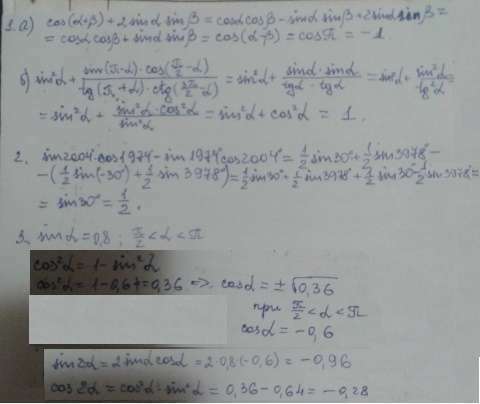 1. а) cos(α+β) + 2sinα sinβ = cosα cosβ − sinα sinβ + 2sinα sinβ =
= cosα cosβ + sinα sinβ = cos(α−β) = cosπ = −1
б) sin²α + (sin(π−α)·cos(π/2−α))/(tg(π+α)·ctg(3π/2−α)) = sin²α + (sinα·sinα)/(tgα·tgα) = sin²α + sin²α/tg²α =
= sin²α + (sin²α·cos²α)/sin²α = sin²α + cos²α = 1.
2. sin2004°·cos1974° − sin1974°cos2004° = 1/2 sin30° + 1/2 sin3978° −
−(1/2 sin(−30°) + 1/2 sin3978°) = 1/2 sin30° + 1/2 sin3978° + 1/2 sin30° − 1/2 sin3978° =
= sin30° = 1/2.
3. sinα = 0,8 ; π/2 < α < π
cos²α = 1 − sin²α
cos²α = 1 − 0,64 = 0,36 ⇒ cosα = ±√0,36
при π/2 < α < π
cosα = −0,6
sin2α = 2sinα cosα = 2·0,8·(−0,6) = −0,96
cos2α = cos²α − sin²α = 0,36 − 0,64 = −0,28